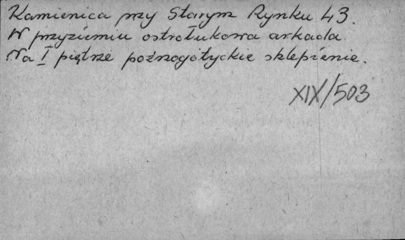 Kamienica przy Starym Rynku 43.
W przyziemiu ostrołukowa arkada.
Na I piętrze poźnogotyckie sklepienie.
XIX/503